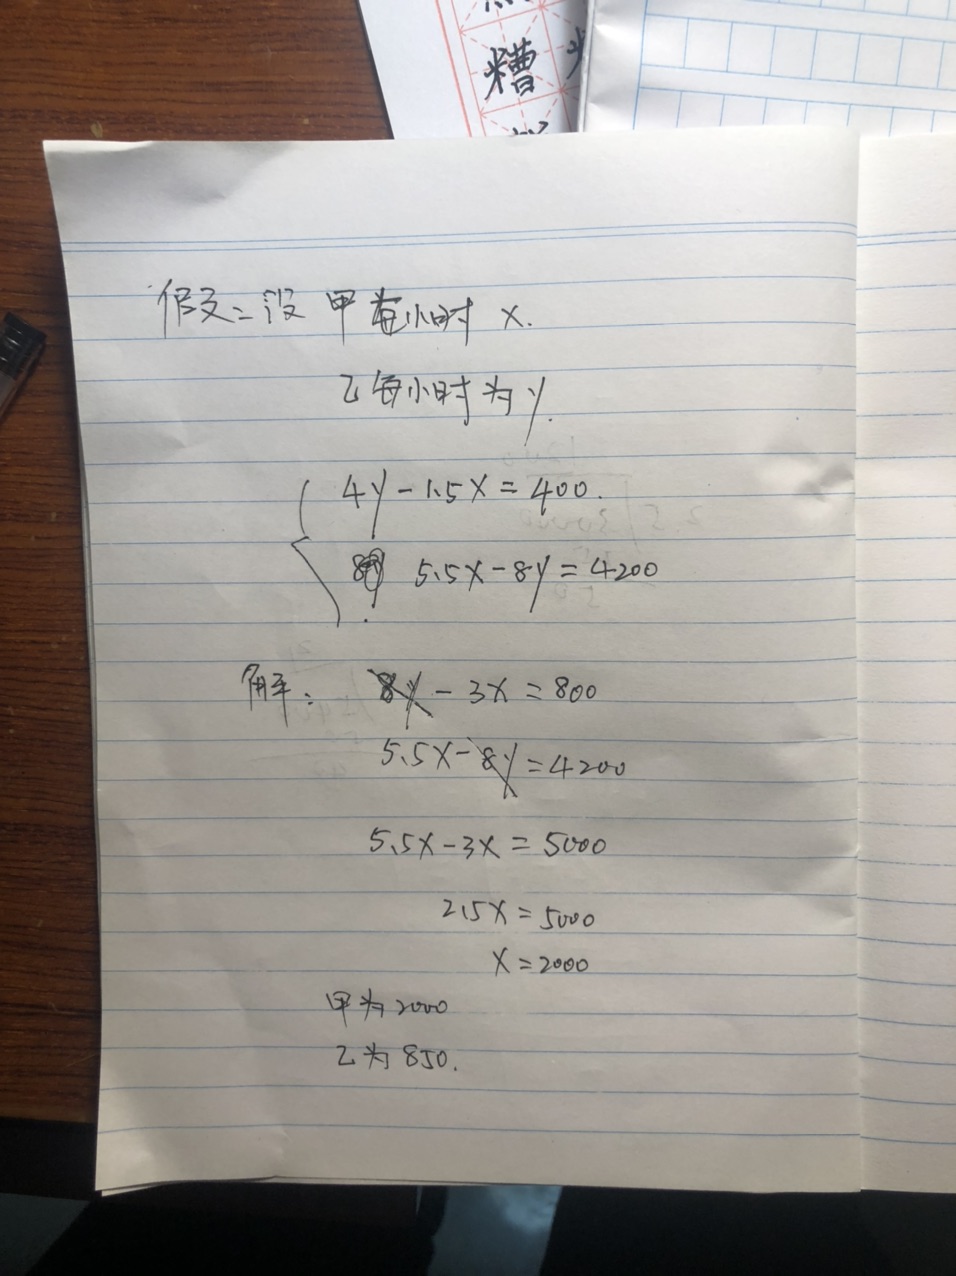 糟
假设二设 甲每小时 X.
乙每小时为 y.
4y - 1.5X = 400.
5.5X - 8y = 4200
解: 8y - 3X = 800
5.5X - 8y = 4200
5.5X - 3X = 5000
2.5X = 5000
X = 2000
甲为 2000
乙为 850.